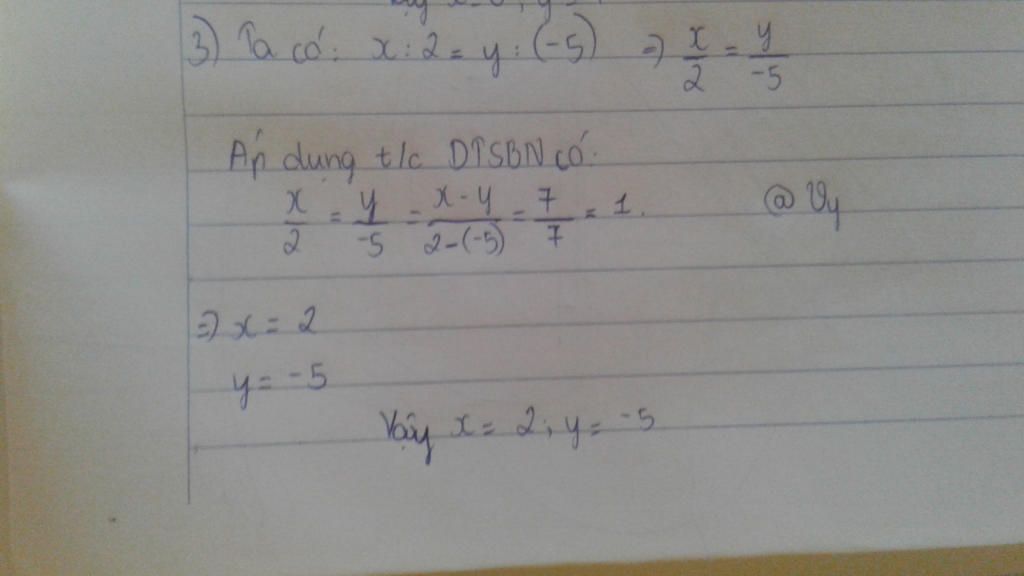 3) Ta có: x : 2 = y : (-5) => x/2 = y/-5
Áp dụng t/c DTSBN có:
x/2 = y/-5 = x-y/2-(-5) = 7/7 = 1. @ Vy
=> x = 2
y = -5
Vậy x = 2; y = -5